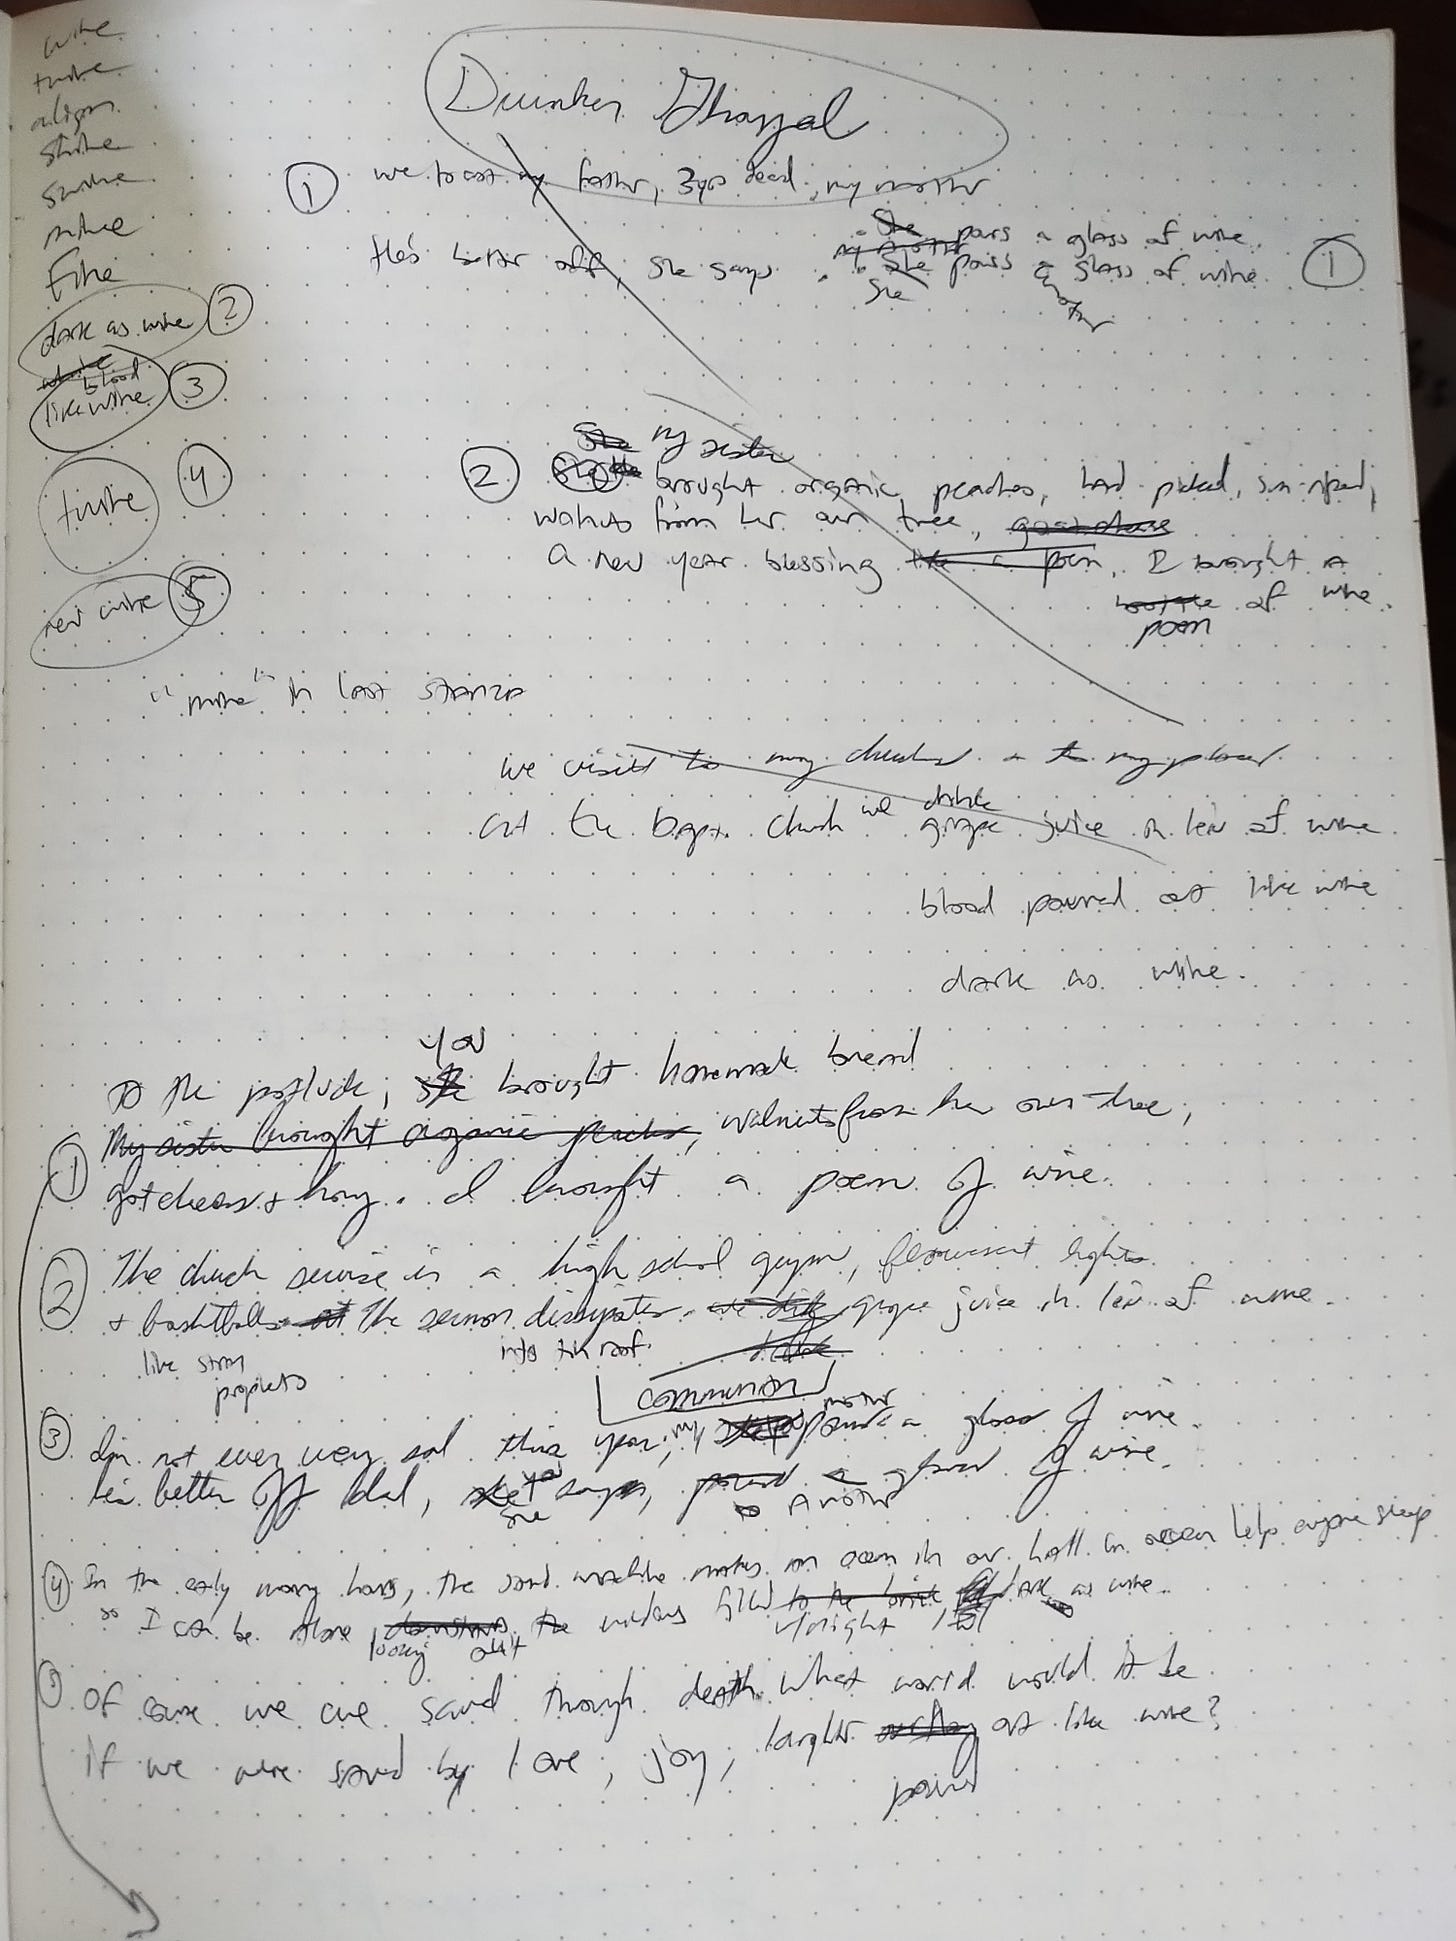 wine
twine
align
shine
swine
mine
Fine
dark as wine 2
blood
like wine 3
twine 4
new wine 5
"mine" in last stanza
Drunken Ghazal
1 we toast my father, 3yrs dead, my mother
She pours a glass of wine.
He's better off, she says. my mother She pours a glass of wine. 1
She another
2 She my sister
brought organic peaches, hand picked, sun-ripened,
walnuts from her own tree, goat cheese
a new year blessing like a poem, I brought a
bottle of wine.
poem
we visit to my church
at the bapt. church we drink grape juice in lieu of wine
blood poured out like wine
dark as wine.
you
To the postlude, she brought homemade bread
1 My sister brought organic peaches, walnuts from her own tree,
goat cheese + honey. I brought a poem of wine.
2 The church service in a high school gym, flourescent lights
+ basketballs at The sermon dissipates. we drink grape juice in lieu of wine.
like strong into the roof.
prophets
communion
3 I'm not even very sad this year, my mother pours a glass of wine.
he's better off dead, she says, poured a glass of wine.
she another
4 In the early morning hours, the sound machine makes an ocean in our hall. An ocean helps anyone sleep
so I can be alone downstairs the windows filled to the brink dark as wine.
looking out w/ night
5 Of course we are saved through death. What world would it be
if we were saved by love, joy, laughter out like wine?
poured